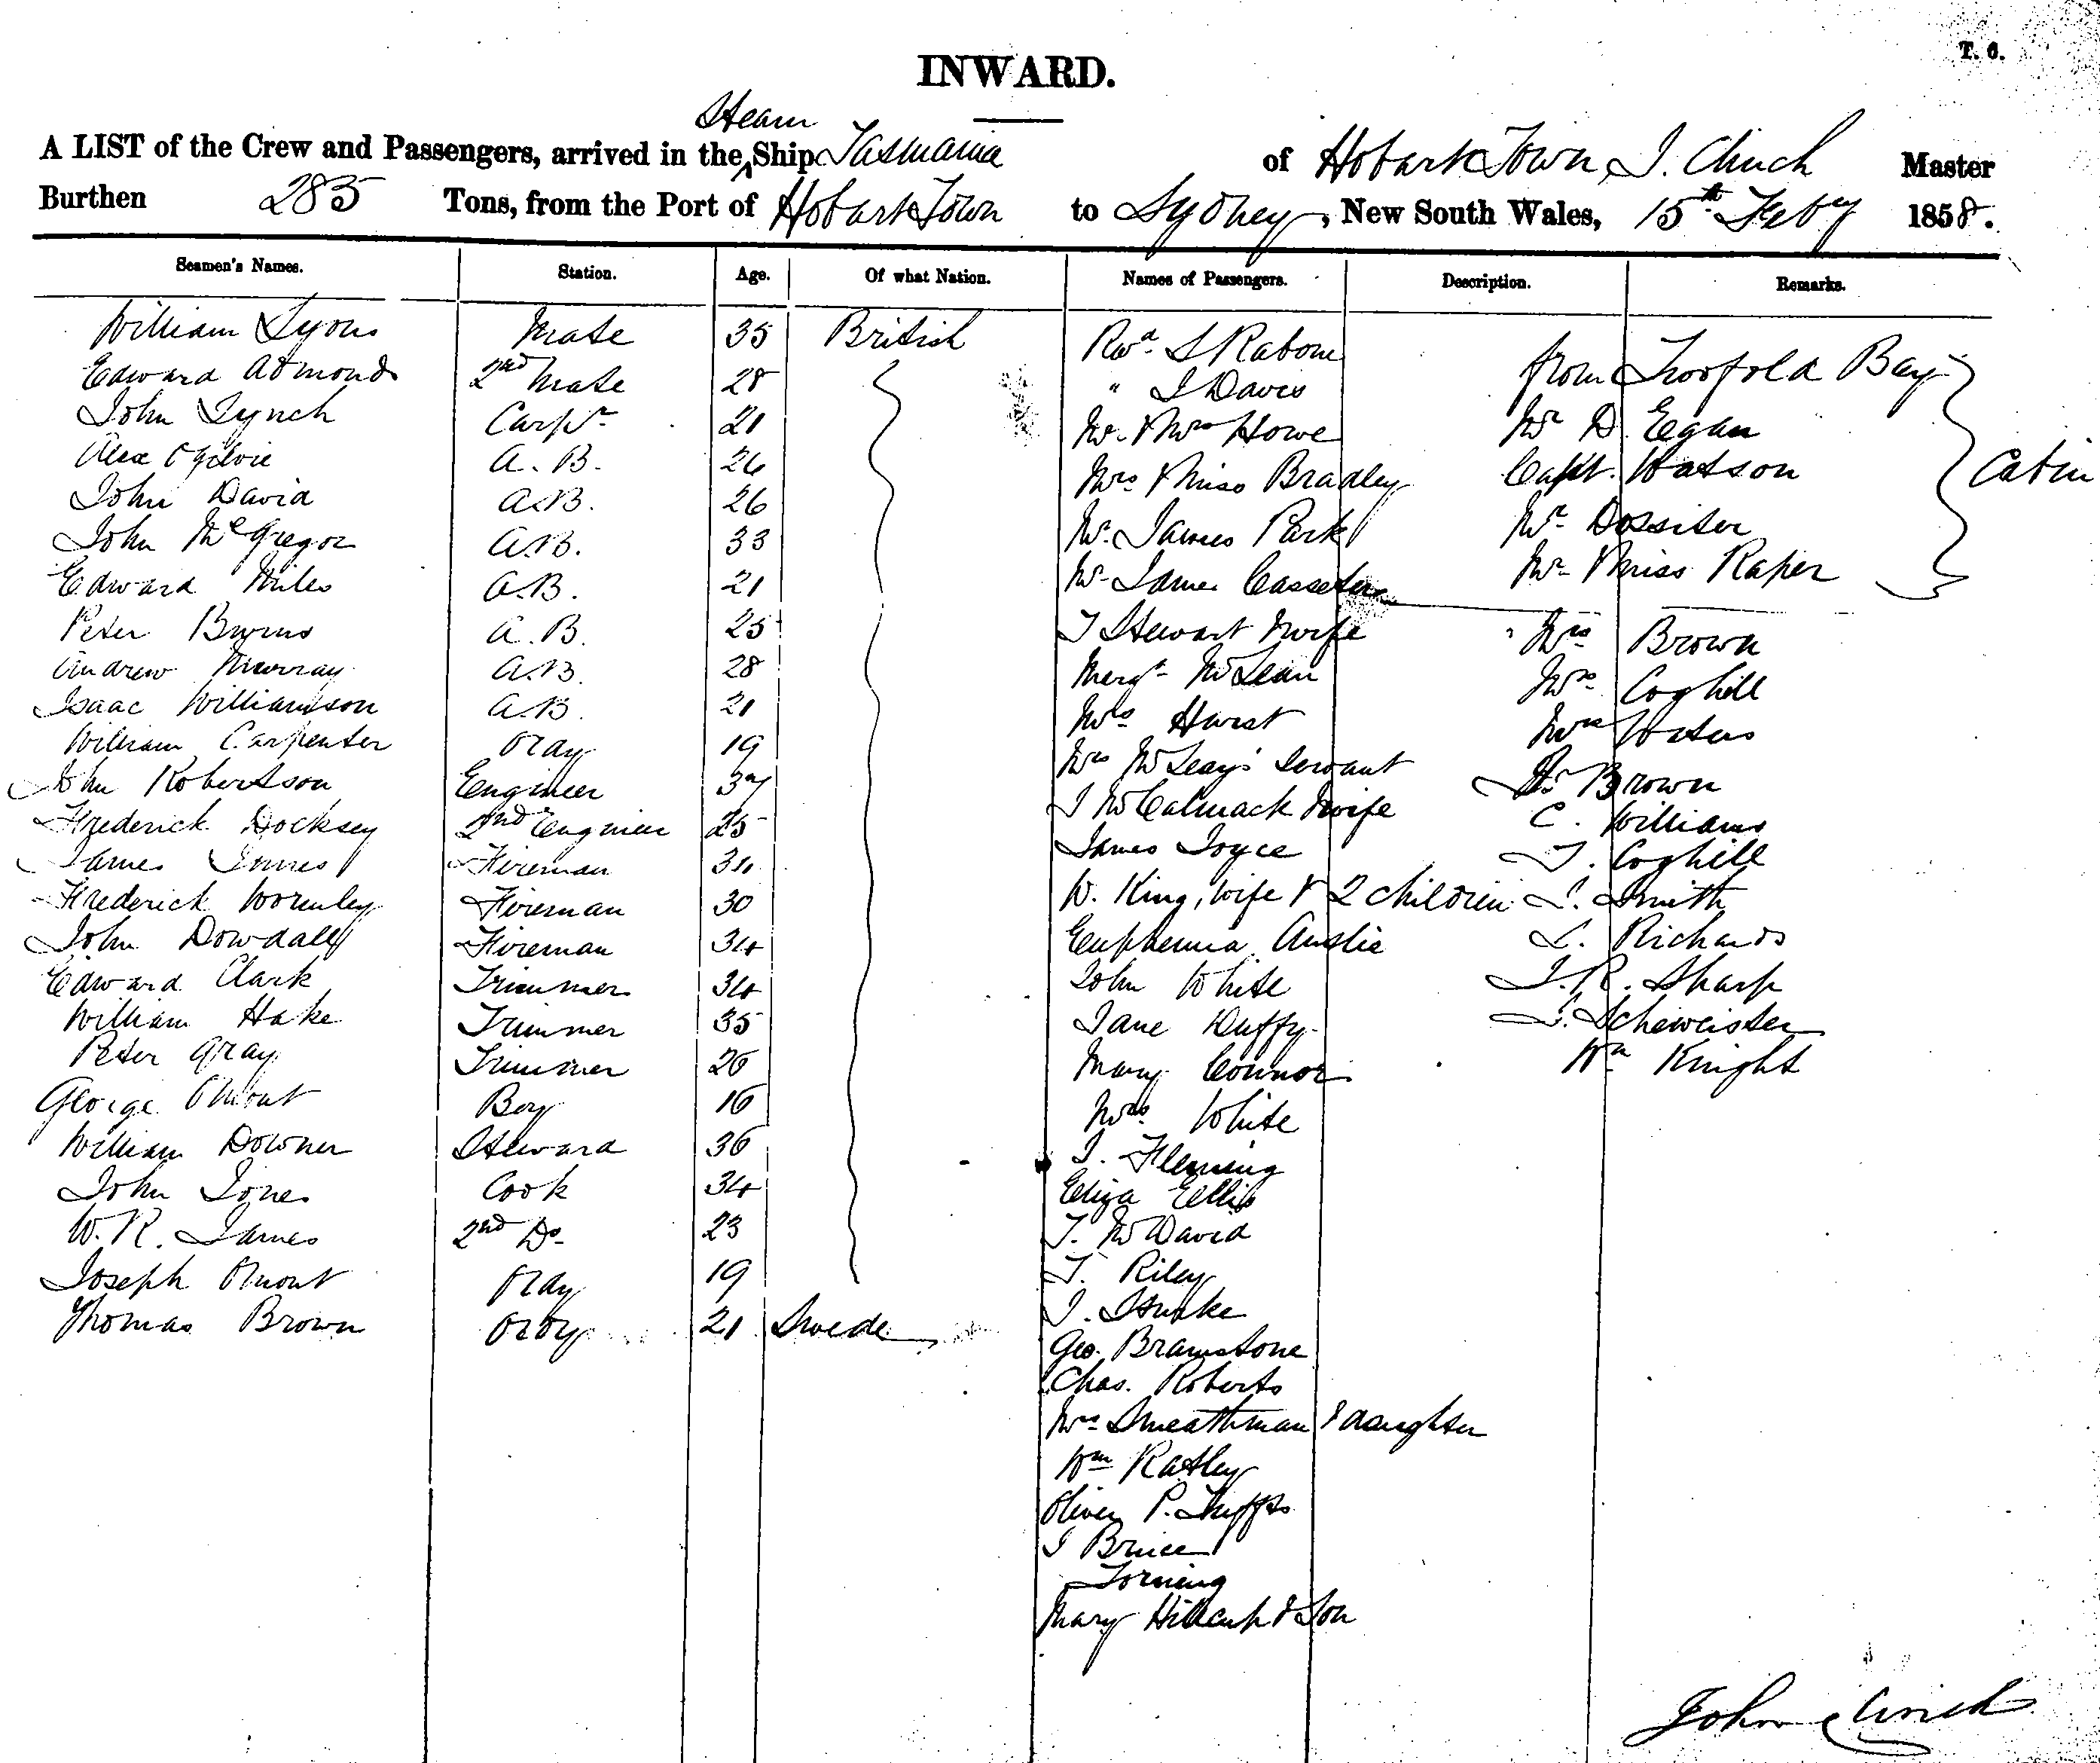 T. 6.
INWARD.
Steam
A LIST of the Crew and Passengers, arrived in the Ship Tasmania of Hobart Town, J. Clinch Master
Burthen 285 Tons, from the Port of Hobart Town to Sydney, New South Wales, 15th Feby 1858.
Seamen's Names. Station. Age. Of what Nation. Names of Passengers. Description. Remarks.
William Lyons Mate 35 British Revd. S Rabone
Edward Admonds 2nd Mate 28 " J Davis from Twofold Bay
John Lynch Carpr 21 Mr. & Mrs Howe Mr D. Egan
Alex Ogilvie A.B. 26 Mrs & Miss Bradley Capt. Watson Cabin
John David A.B. 26 Mr. James Park Mr Dossiter
John McGregor A.B. 33 Mr James Mr & Miss Raper
Edward Miles A.B. 21
Peter Burns A.B. 25 T Stewart & wife Mrs Brown
Andrew Murray A.B. 28 Margt McLean Mrs Coghill
Isaac Williamson A.B. 21 Mrs Hurst Mrs Waters
William Carpenter Ordy 19 Mrs McLeay's Servant Dr Brown
John Robertson Engineer 37 J McCalmack & wife C. Williams
Frederick Docksey 2nd Engineer 25 James Joyce T. Coghill
James Innes Fireman 34 W. King, wife & 2 children J. Smith
Frederick Wormley Fireman 30 Euphemia Anslie L. Richards
John Dowdall Fireman 34 John White J.R. Sharp
Edward Clark Trimmer 34 Jane Duffy S. Scheweister
William Hake Trimmer 35 Mary Connor Wm Knight
Peter Gray Trimmer 26 Mrs White
George Boy 16 J. Fleming
William Downer Steward 36 Eliza Ellis
John Jones Cook 34 T. McDavid
W.R. James 2nd Do 23 T. Riley
Joseph Ordy 19 J.
Thomas Brown Ordy 21 Swede Geo. Bramstone
Chas. Roberts
Mrs Smeathman & daughter
Wm Ratley
Oliver P.
J Bruce
Torning
Mary & Son
John Clinch